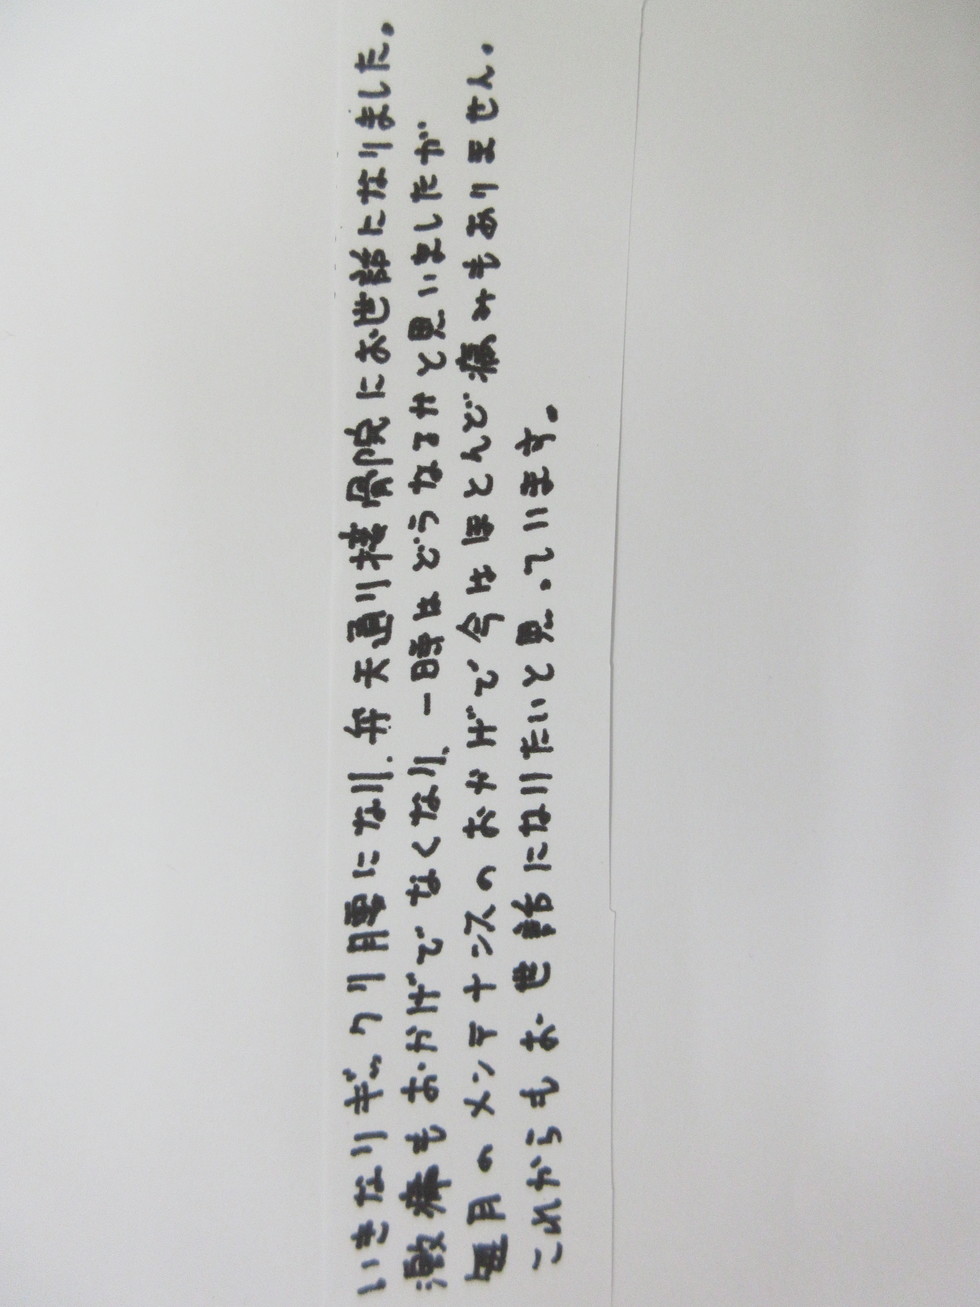 いきなりギックリ腰になり、弁天通り接骨院にお世話になりました。
激痛もおかげでなくなり、一時はどうなるかと思いましたが
毎月のメンテナンスのおかげで今はほとんど痛みもありません。
これからもお世話になりたいと思っています。